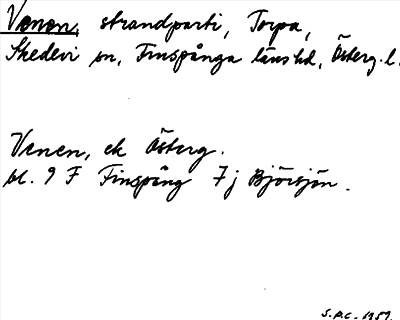 Venen, strandparti, Torpa,
Skedevi sn, Finspånga läns hd, Österg. l.
Venen, ek Österg.
bl. 9 F Finspång 7j Björsjön.
S.P.C. 1959.